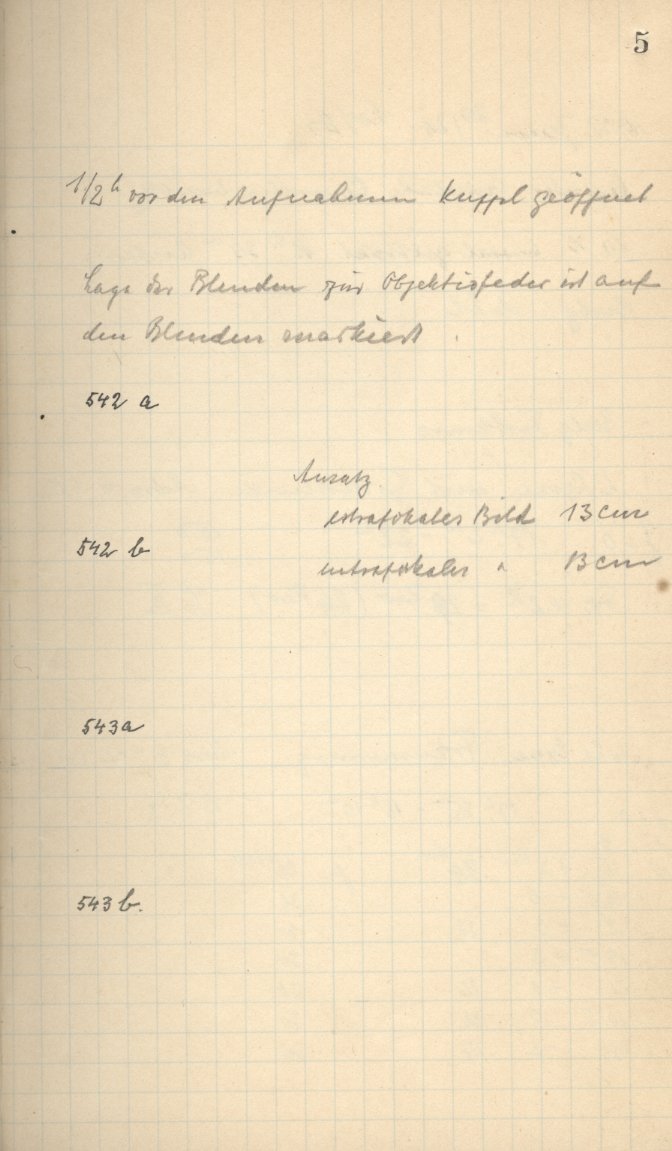 5
1/2h vor den Aufnahmen Kuppel geöffnet
Lage der Blenden zur Objektivfeder ist auf
den Blenden markiert.
542 a
Ansatz
extrafokales Bild 13 cm
542 b
intrafokales " 13 cm
543a
543 b.